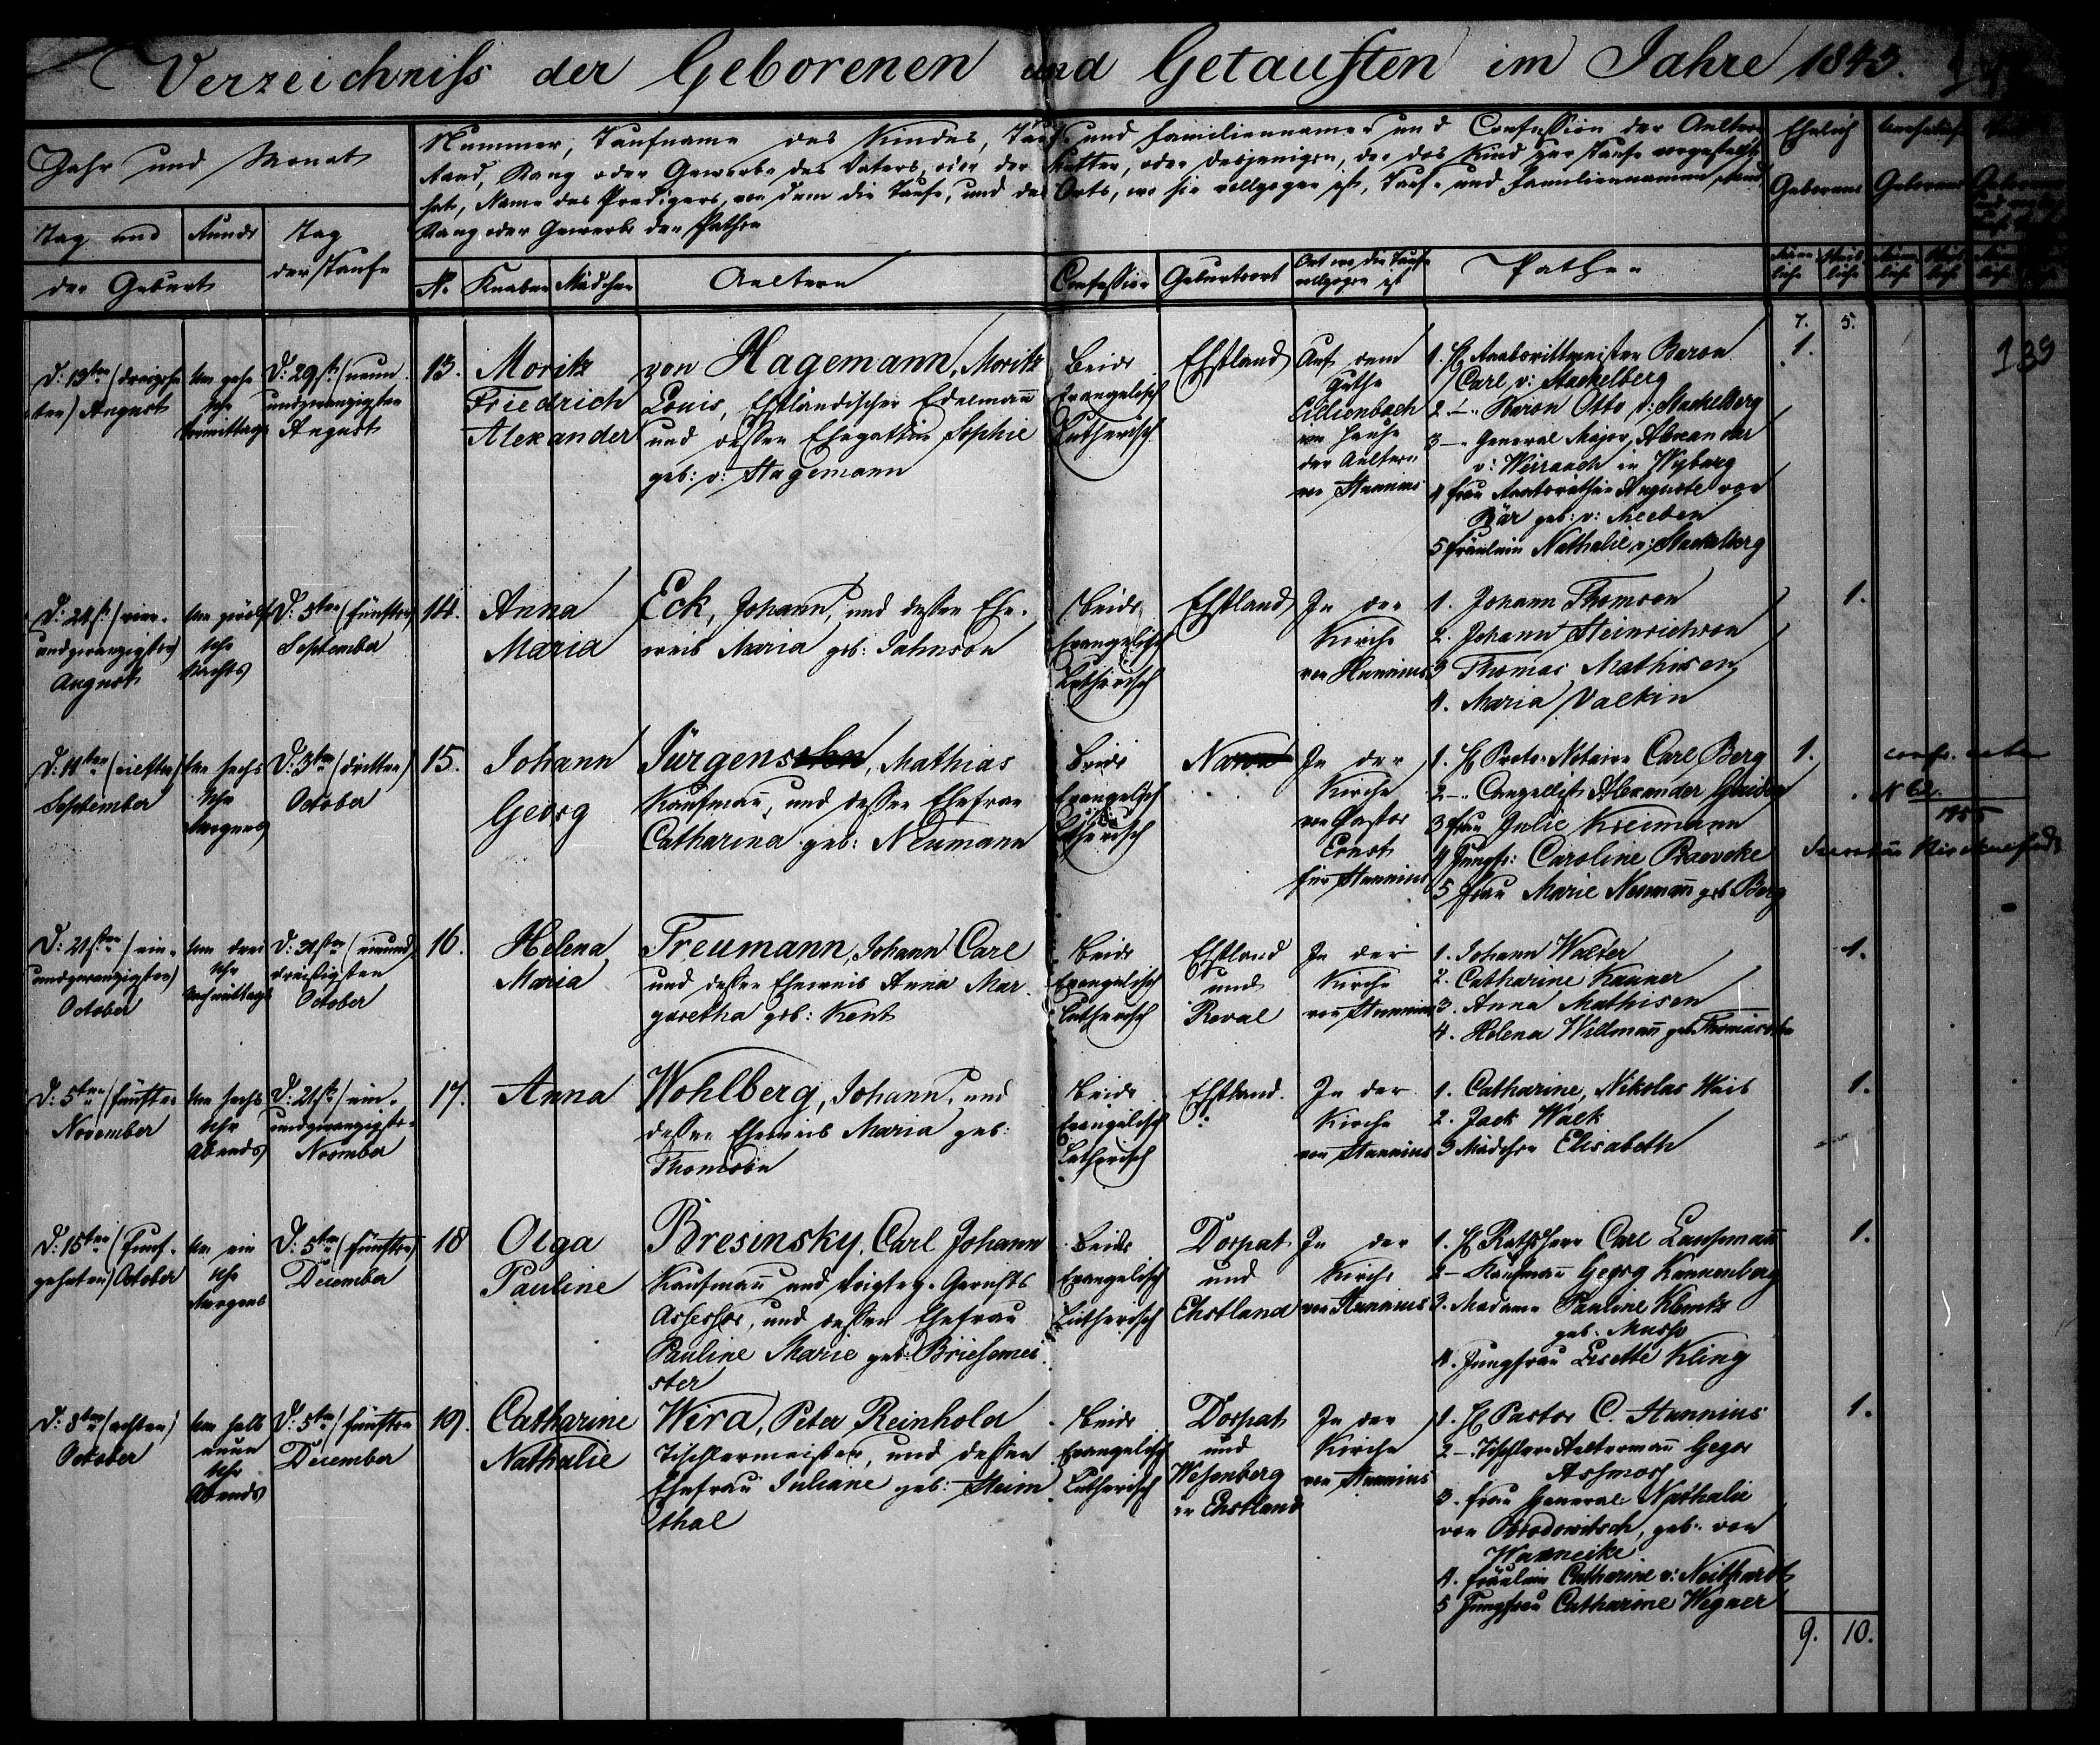 Verzeichniß der Geborenen und Getauften im Jahre 1843.
Jahr und Monat
Tag und
Stunde
der Geburt
Tag
der Taufe
Nummer, Taufname des Kindes, Tauf- und Familiennamen und Confession der Aeltern
Stand, Rang oder Gewerbe des Vaters, oder der Mutter, oder desjenigen, der das Kind zur Taufe vorgestellt
hat, Name des Predigers, von dem die Taufe, und des Orts, wo sie vollzogen ist, Tauf- und Familiennamen, Stand,
Rang oder Gewerbe der Pathen
Ehelich
Geborene
Unehelich
Geborene
Männ-
liche
Weib-
liche
Männ-
liche
Weib-
liche
No
Knaben
Mädchen
Aeltern
Confession
Geburtsort
Ort wo die Taufe
vollzogen ist
Pathen
7. 5.
139
D: 13ten (dreizehn
ten) August
Um zehn
Uhr
Vormittags
D: 29st (neun
undzwanzigsten
August
13.
Moritz
Friedrich
Alexander
von Hagemann, Moritz
Louis, Ehstländischer Edelmann
und dessen Ehegattin Sophie
geb: v: Hagemann
Beide
Evangelisch
Lutherisch
Ehstland
Auf dem
Guthe
Lilienbach
im Hause
der Aeltern
von Hunnius
1. H Stabsrittmeister Baron
Carl v: Stackelberg
2. — Baron Otto v: Stackelberg
3 — General Major, Alexander
in Wyburg
4 Frau Staatsräthin Auguste von
Bär geb: v:
5 Fräulein Nathalie v: Stackelberg
1.
D: 24st (vier-
undzwanzigsten)
August
Um zwölf
Uhr
Nachts
D: 5ten (fünften)
September
14.
Anna
Maria
Eck, Johann, und dessen Ehe-
weib Maria geb: Jahnson
Beide
Evangelisch
Lutherisch
Ehstland
In der
Kirche
von Hunnius
1. Johann Thomson
2. Johann Heinrichson
3 Thomas Mathisen
4. Maria Valkin
1.
D: 11ten (eilften)
September
Um sechs
Uhr
Morgens
D: 3ten (dritten)
October
15.
Johann
Georg
Jürgensohn, Mathias
Kaufmann, und dessen Ehefrau
Catharina geb: Neumann
Beide
Evangelisch
Lutherisch
Narva
In der
Kirche
von Pastor
Ernst
für Hunnius
1. H Proto-Notaire Carl Berg
2 — Canzellist Alexander
3 Frau Julie Kreimann
4 Jungfr: Caroline
5 Frau Marie Neumann geb Berg
1.
N 62
D: 21sten (ein-
undzwanzigsten)
October
Um drei
Uhr
Nachmittags
D: 31sten (einund
dreißigsten
October
16.
Helena
Maria
Treumann, Johann Carl
und dessen Eheweib Anna Mar-
garetha geb: Kent
Beide
Evangelisch
Lutherisch
Ehstland
und
Reval
In der
Kirche
von Hunnius
1. Johann Walter
2. Catharine Kanner
3. Anna Mathisen
4. Helena Willmann geb Thomasohn
1.
D: 5ten (fünften
November
Um sechs
Uhr
Abends
D: 21st (ein-
undzwanzigsten
November
17.
Anna
Wohlberg, Johann, und
dessen Eheweib Maria geb:
Thomson
Beide
Evangelisch
Lutherisch
Ehstland.
In der
Kirche
von Hunnius
1. Catharine, Nikolas Weib
2. Jack Walk
3 Mädchen Elisabeth
1.
D: 15ten (funf-
zehnten) October
Um ein
Uhr
Morgens
D: 5ten (fünften)
December
18
Olga
Pauline
Bresinsky, Carl Johann
Kaufmann und Voigtey-Gerichts
Assessor, und dessen Ehefrau
Pauline Marie geb: Briesemei-
ster
Beide
Evangelisch
Lutherisch
Dorpat
und
Ehstland
In der
Kirche
von Hunnius
1. H Rathsherr Carl
2 — Kaufmann Georg Kannenberg
3. Madame Pauline Klentz
geb. Musso
4. Jungfrau Lisette Kling
1.
D: 8ten (achten)
October
Um halb
neun
Uhr
Abends
D: 5ten (fünften
December
19.
Catharine
Nathalie
Wira, Peter Reinhold
Tischlermeister, und dessen
Ehefrau Juliane geb: Heim
thal
Beide
Evangelisch
Lutherisch
Dorpat
und
Wesenberg
in Ehstland
In der
Kirche
von Hunnius
1. H Pastor C. Hunnius
2 — Tischler Aeltermann Gegor
Assmoss
3. Frau General: Nathalie
von, geb: von
Warneike
4. Fräulein Catharine v: Neithardt
5 Jungfrau Catharine Wegner
1.
9. 10.